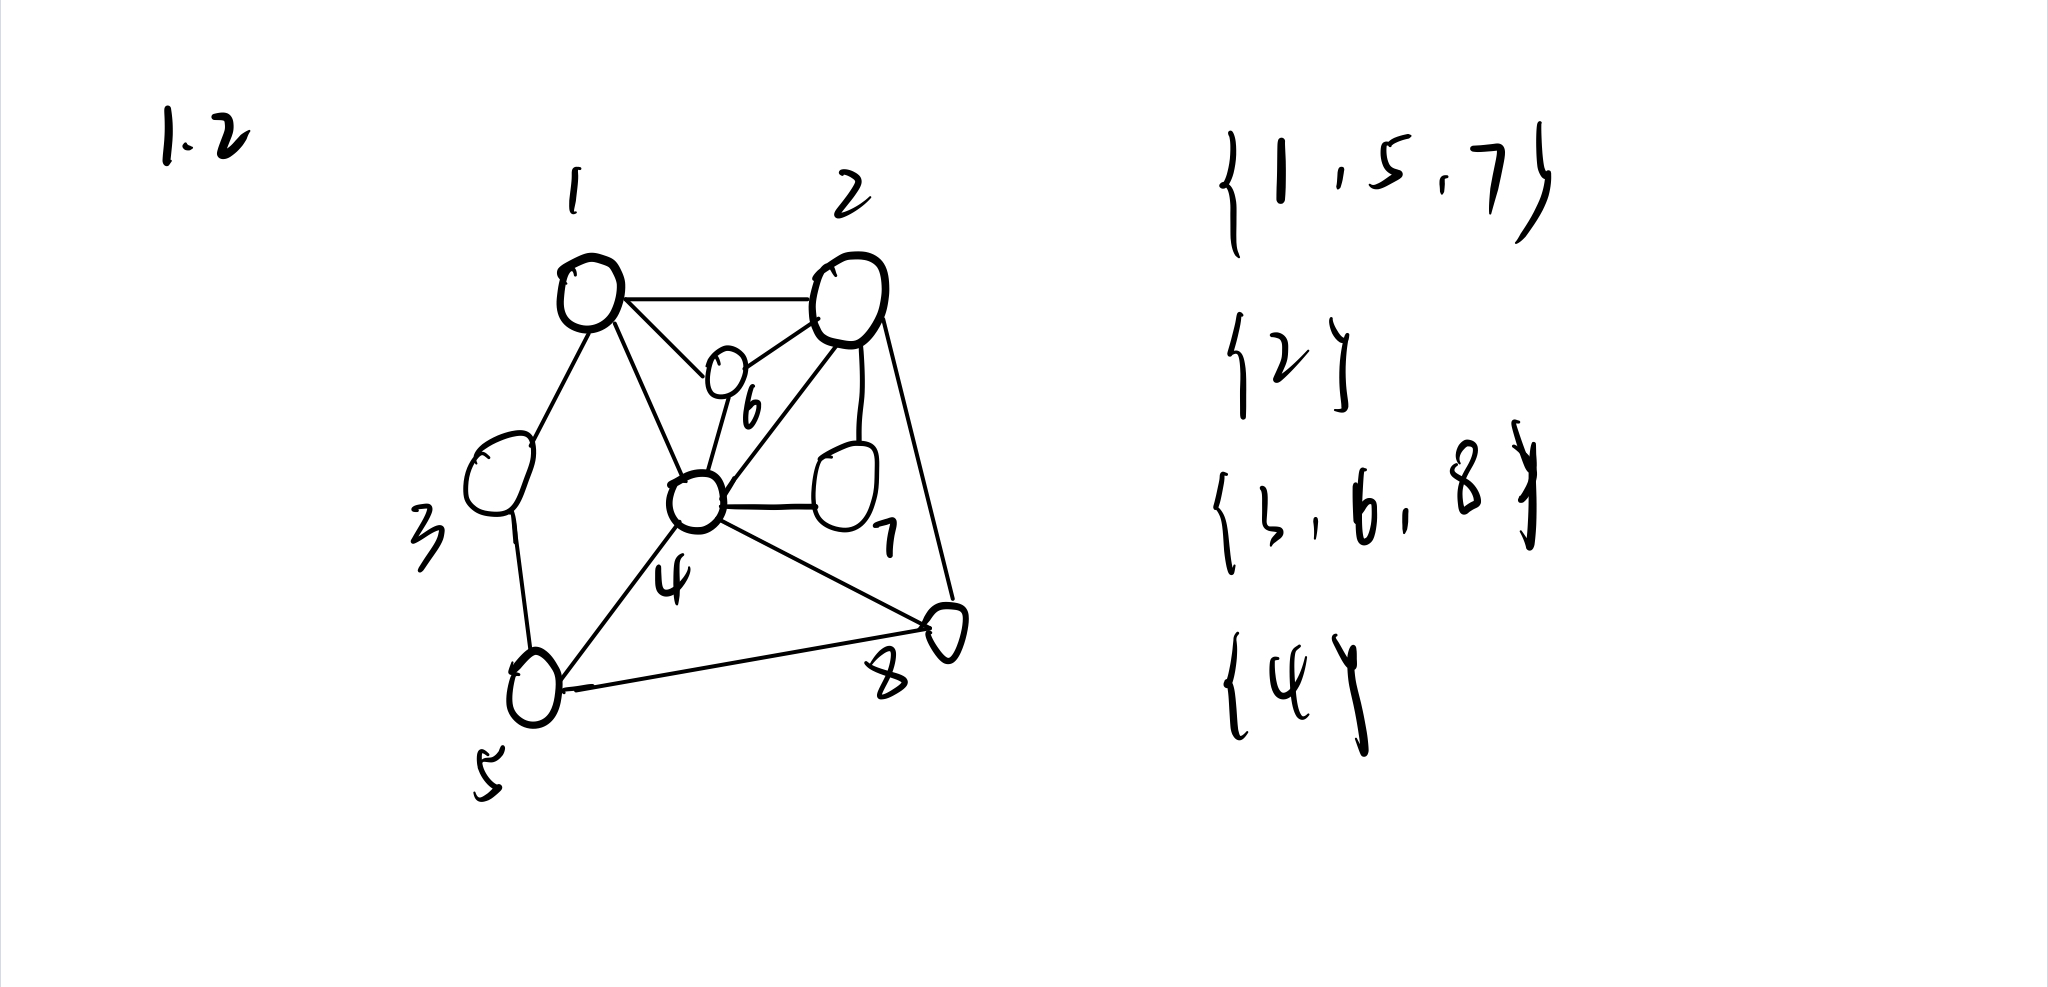 1.2
1
2
6
3
4
7
8
5
{1, 5, 7}
{2}
{3, 6, 8}
{4}